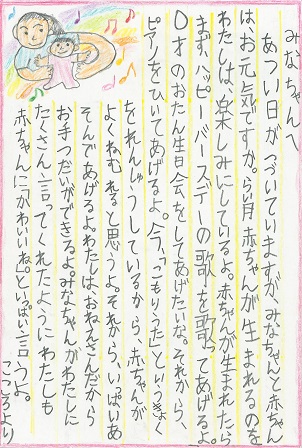 みなちゃんへ
あつい日がつづいていますが、みなちゃんと赤ちゃん
は、お元気ですか。らい月、赤ちゃんが生まれるのを
わたしは、楽しみにしているよ。赤ちゃんが生まれたら、
まず、ハッピーバースデーの歌を歌ってあげるよ。
0才のおたん生日会をしてあげたいな。それから、
ピアノをひいてあげるよ。今、「こもりうた」というきょく
をれんしゅうしているから、赤ちゃんが
よくねむれると思うよ。それから、いっぱいあ
そんであげるよ。わたしは、おねえさんだから
お手つだいができるよ。みなちゃんがわたしに
たくさん言ってくれたようにわたしも
赤ちゃんに「かわいいね」といっぱい言うよ。
こころより